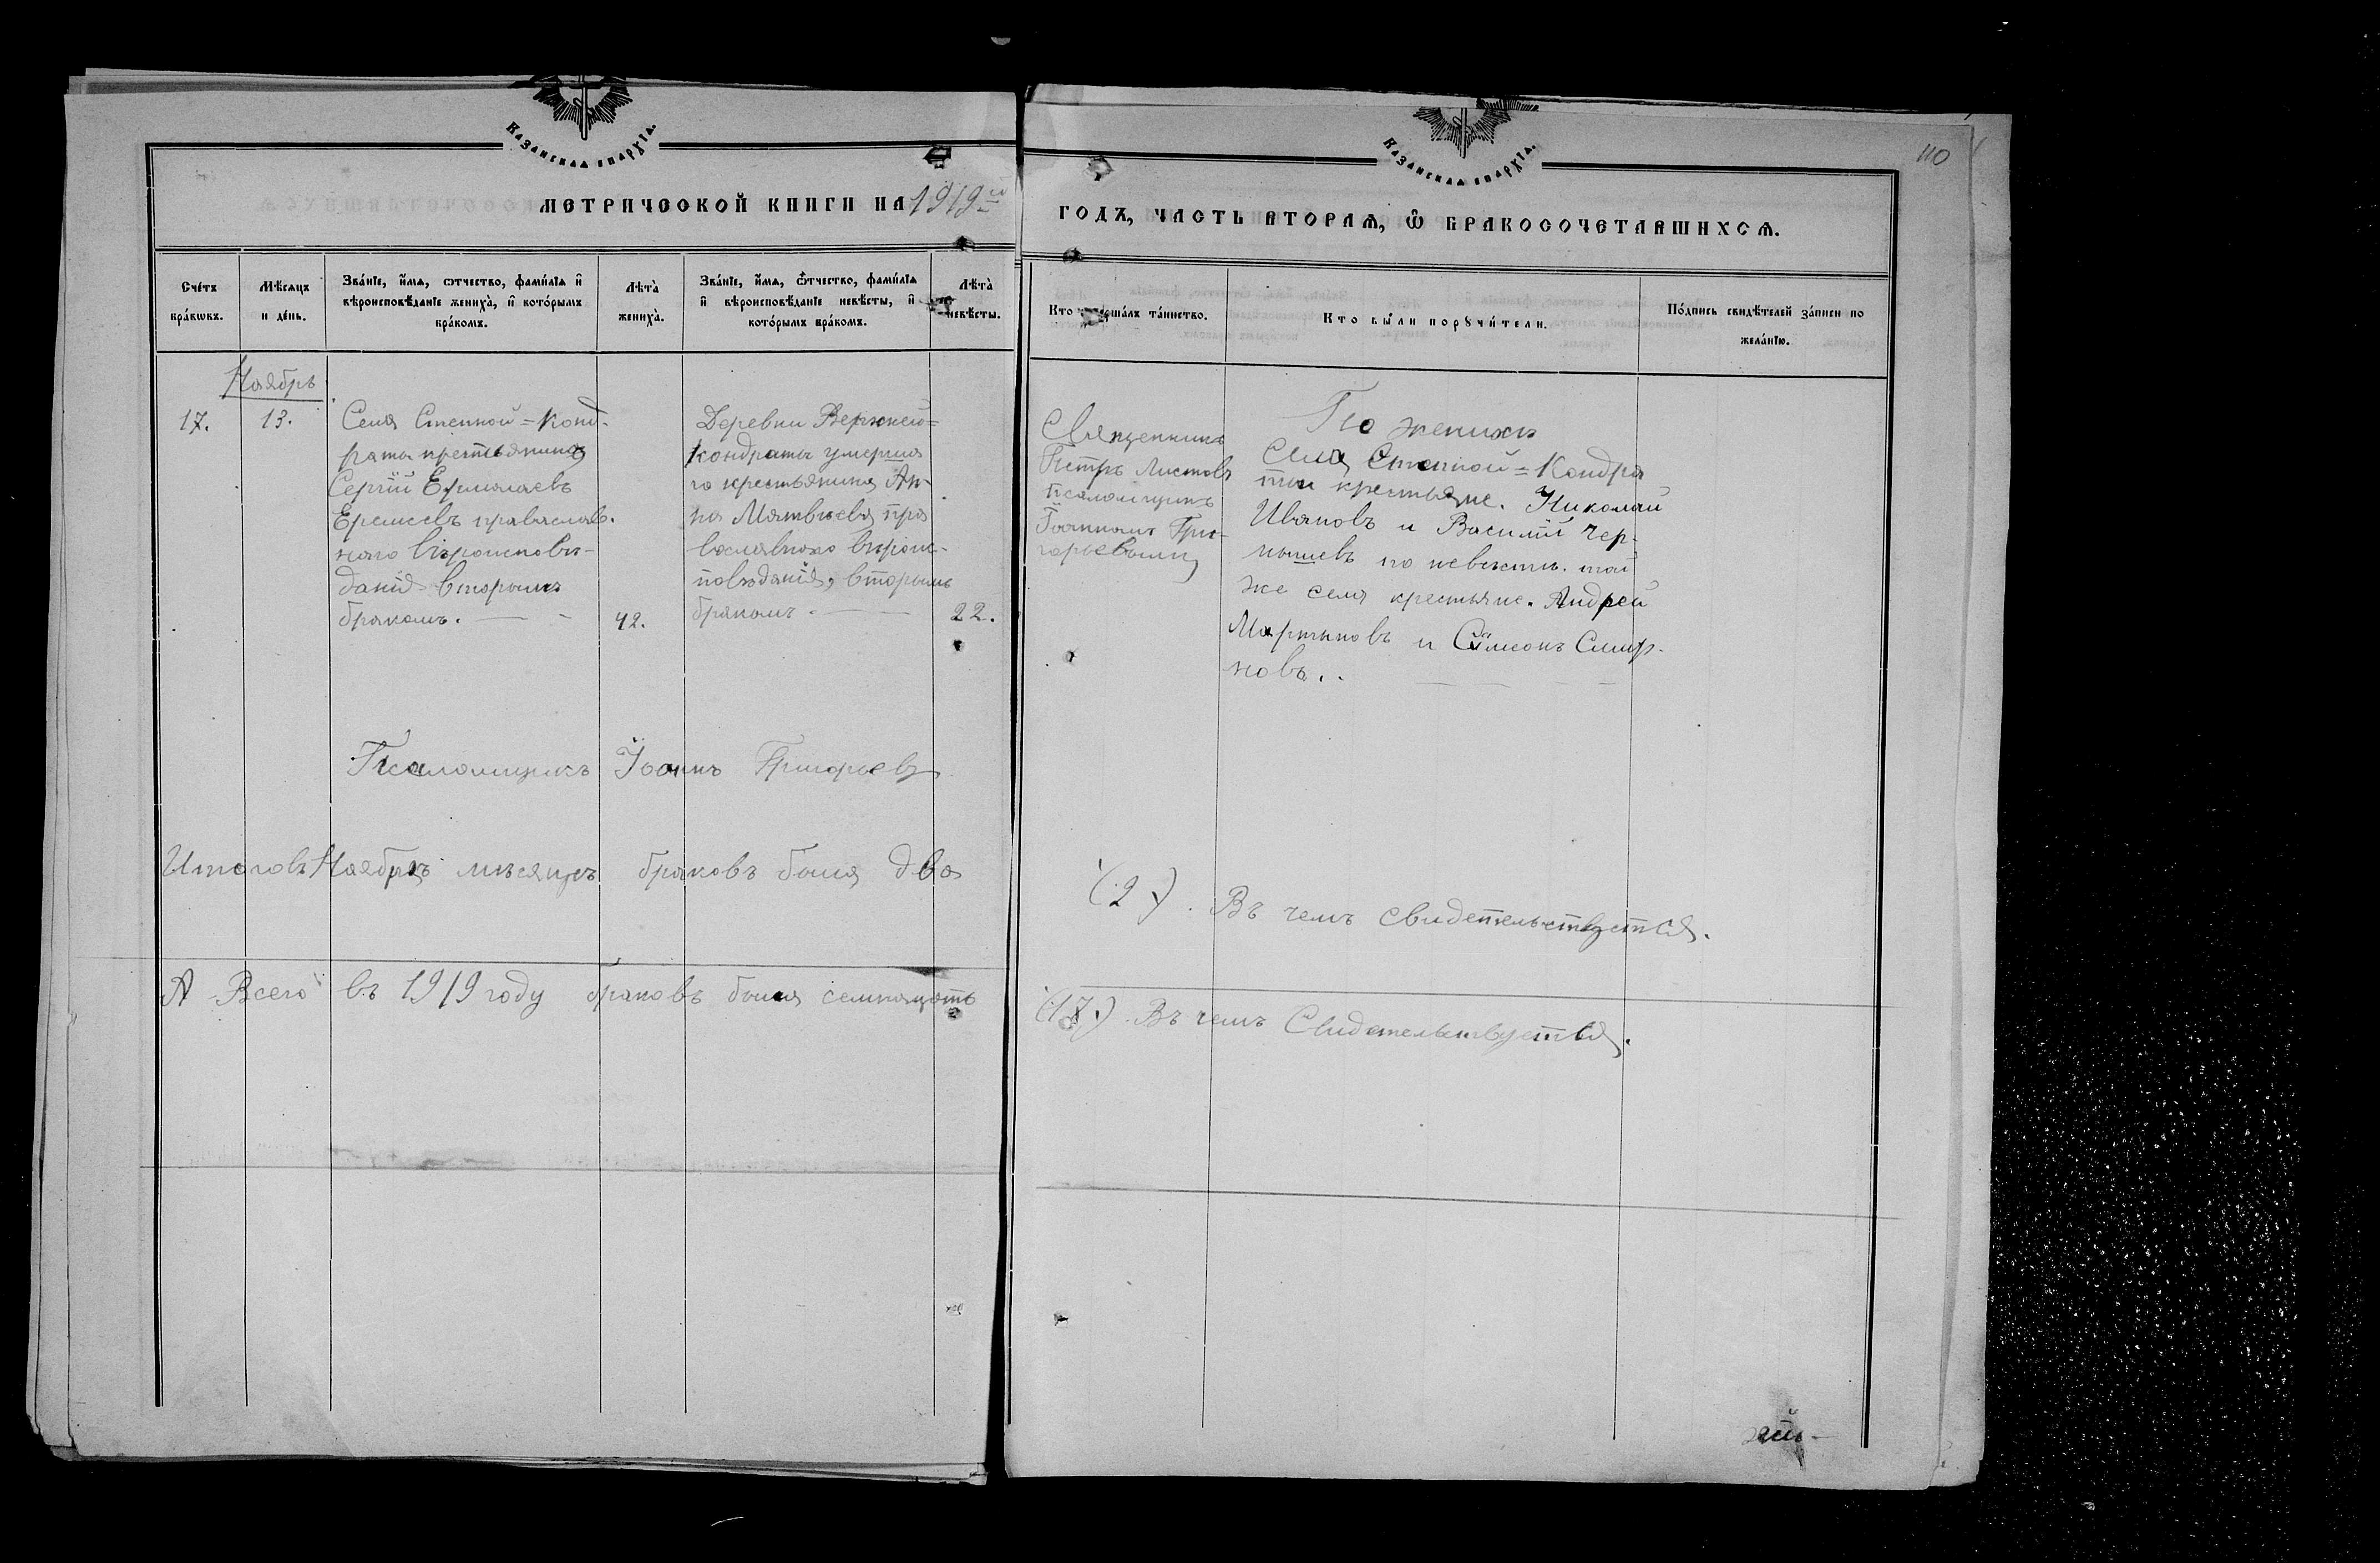 Казанская епархїа.
Казанская епархїа.
110
МЕТРИЧЕСКОЙ КНИГИ НА 1919й
ГОДЪ, ЧАСТЬ ВТОРАЯ, Ѿ БРАКОСОЧЕТАВШИХСЯ.
Сче́тъ бра́кѡвъ.
Мѣ́сяцъ и де́нь.
Зва́нїе, и҆́мя, ѻтчество, фами́лїя и҆ вѣроисповѣ́данїе жениха̀, и҆ кото́рымъ бра́комъ.
Лѣта̀ жениха̀.
Зва́нїе, и҆́мя, ѻтчество, фами́лїя и҆ вѣроисповѣ́данїе невѣ́сты, и҆ кото́рымъ бра́комъ.
Лѣта̀ невѣ́сты.
Кто соверша́лъ та́инство.
Кто бы́ли порꙋчи́тели.
По́дпись свидѣ́телей за́писи по жела́нїю.
Ноябрь
17.
13.
Села Степной=Конд-
раты крестьянинъ
Сергій Ермолаевъ
Еремеевъ православ-
наго вѣроисповѣ-
данія вторымъ
бракомъ.
42.
Деревни Верхней=
Кондраты умерша
го крестьянина Ан-
на Матвѣева пра
вославнаго вѣроис-
повѣданія, вторымъ
бракомъ.
22.
Священникъ
Петръ Листовъ
псаломщикъ
Іоанномъ Гри-
горьевымъ
По женихѣ
Села Степной=Кондра
ты крестьяне. Николай
Ивановъ и Василій Чер-
нышевъ по невѣстѣ. той
же села крестьяне. Андрей
Мартыновъ и Сѵмеонъ Смир-
новъ..
Псаломщикъ Іоаннъ Григорьевъ
Итого въ Ноябрѣ мѣсяцѣ браковъ было два
(2). Въ чемъ свидетельствуется.
А Всего въ 1919 году браковъ было семнацать
(17.) Въ чемъ Свидетельствуется.